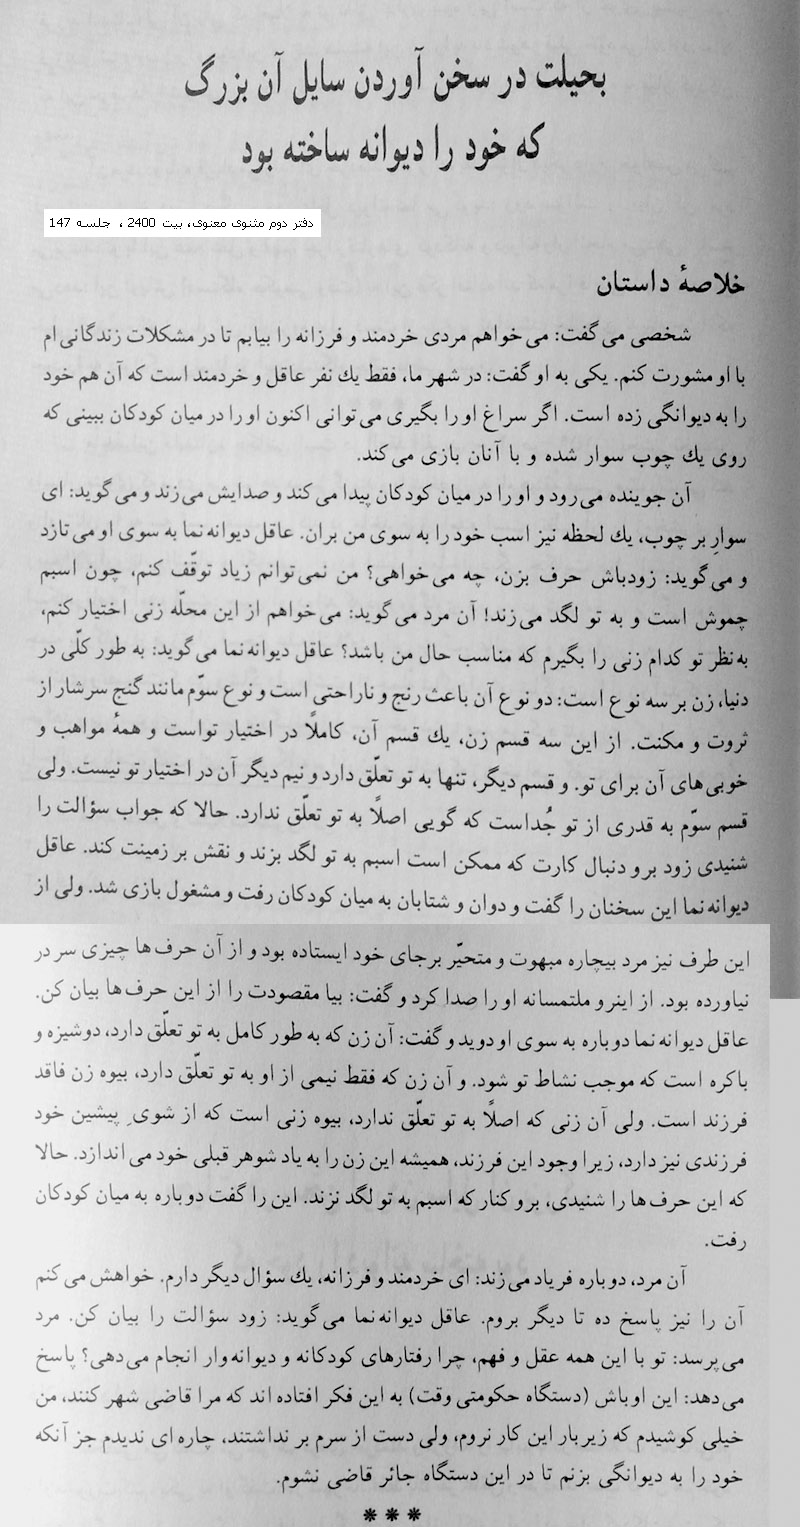 بحیلت در سخن آوردن سایل آن بزرگ
که خود را دیوانه ساخته بود
دفتر دوم مثنوی معنوی، بیت 2400 ، جلسه 147
خلاصهٔ داستان
شخصی می‌گفت: می‌خواهم مردی خردمند و فرزانه را بیابم تا در مشکلات زندگانی‌ام
با او مشورت کنم. یکی به او گفت: در شهر ما، فقط یك نفر عاقل و خردمند است که آن هم خود
را به دیوانگی زده است. اگر سراغ او را بگیری می‌توانی اکنون او را در میان کودکان ببینی که
روی یك چوب سوار شده و با آنان بازی می‌کند.
آن جوینده می‌رود و او را در میان کودکان پیدا می‌کند و صدایش می‌زند و می‌گوید: ای
سوارِ بر چوب، یك لحظه نیز اسب خود را به سوی من بران. عاقل دیوانه‌نما به سوی او می‌تازد
و می‌گوید: زودباش حرف بزن، چه می‌خواهی؟ من نمی‌توانم زیاد توقّف کنم، چون اسبم
چموش است و به تو لگد می‌زند! آن مرد می‌گوید: می‌خواهم از این محلّه زنی اختیار کنم،
به‌نظر تو کدام زنی را بگیرم که مناسب حال من باشد؟ عاقل دیوانه‌نما می‌گوید: به طور کلّی در
دنیا، زن بر سه نوع است: دو نوع آن باعث رنج و ناراحتی است و نوع سوّم مانند گنج سرشار از
ثروت و مکنت. از این سه قسم زن، یك قسم آن، کاملاً در اختیار تواست و همهٔ مواهب و
خوبی‌های آن برای تو. و قسم دیگر، تنها به تو تعلّق دارد و نیم دیگر آن در اختیار تو نیست. ولی
قسم سوّم به قدری از تو جُداست که گویی اصلاً به تو تعلّق ندارد. حالا که جواب سؤالت را
شنیدی زود برو دنبال کارت که ممکن است اسبم به تو لگد بزند و نقش بر زمینت کند. عاقل
دیوانه‌نما این سخنان را گفت و دوان و شتابان به میان کودکان رفت و مشغول بازی شد. ولی از
این طرف نیز مرد بیچاره مبهوت و متحیّر برجای خود ایستاده بود و از آن حرف‌ها چیزی سر در
نیاورده بود. از اینرو ملتمسانه او را صدا کرد و گفت: بیا مقصودت را از این حرف‌ها بیان کن.
عاقل دیوانه‌نما دوباره به سوی او دوید و گفت: آن زن که به طور کامل به تو تعلّق دارد، دوشیزه و
باکره است که موجب نشاط تو شود. و آن زن که فقط نیمی از او به تو تعلّق دارد، بیوه زن فاقد
فرزند است. ولی آن زنی که اصلاً به تو تعلّق ندارد، بیوه زنی است که از شویِ پیشین خود
فرزندی نیز دارد، زیرا وجود این فرزند، همیشه این زن را به یاد شوهر قبلی خود می‌اندازد. حالا
که این حرف‌ها را شنیدی، برو کنار که اسبم به تو لگد نزند. این را گفت دوباره به میان کودکان
رفت.
آن مرد، دوباره فریاد می‌زند: ای خردمند و فرزانه، یك سؤال دیگر دارم. خواهش می‌کنم
آن را نیز پاسخ ده تا دیگر بروم. عاقل دیوانه‌نما می‌گوید: زود سؤالت را بیان کن. مرد
می‌پرسد: تو با این همه عقل و فهم، چرا رفتارهای کودکانه و دیوانه‌وار انجام می‌دهی؟ پاسخ
می‌دهد: این اوباش (دستگاه حکومتی وقت) به این فکر افتاده‌اند که مرا قاضی شهر کنند، من
خیلی کوشیدم که زیر بار این کار نروم، ولی دست از سرم بر نداشتند، چاره‌ای ندیدم جز آنکه
خود را به دیوانگی بزنم تا در این دستگاه جائر قاضی نشوم.
* * *